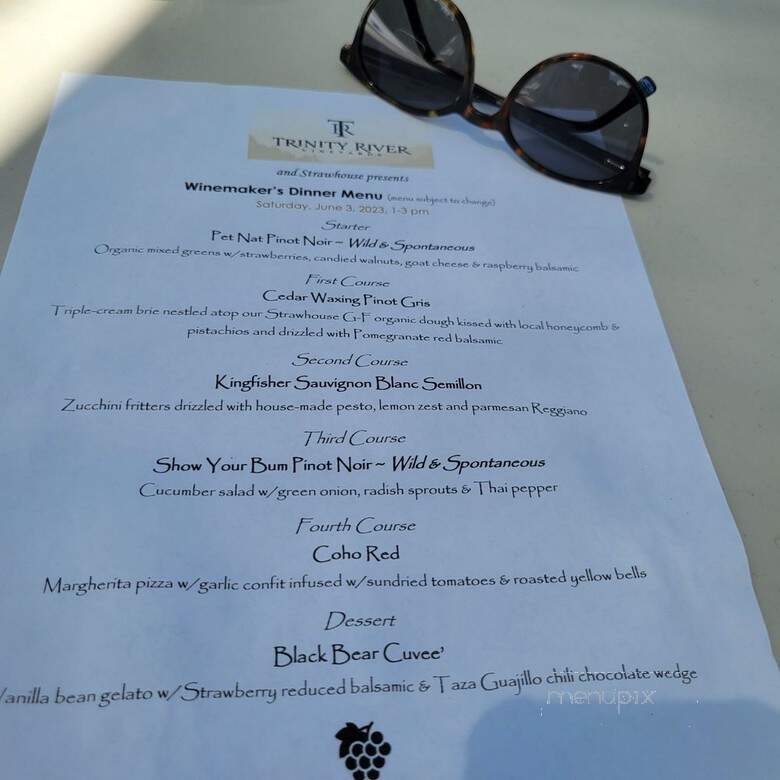 TR
TRINITY RIVER
VINEYARDS
and Strawhouse presents
Winemaker's Dinner Menu (menu subject to change)
Saturday, June 3, 2023, 1-3 pm
Starter
Pet Nat Pinot Noir ~ Wild & Spontaneous
Organic mixed greens w/strawberries, candied walnuts, goat cheese & raspberry balsamic
First Course
Cedar Waxing Pinot Gris
Triple-cream brie nestled atop our Strawhouse G-F organic dough kissed with local honeycomb &
pistachios and drizzled with Pomegranate red balsamic
Second Course
Kingfisher Sauvignon Blanc Semillon
Zucchini fritters drizzled with house-made pesto, lemon zest and parmesan Reggiano
Third Course
Show Your Bum Pinot Noir ~ Wild & Spontaneous
Cucumber salad w/green onion, radish sprouts & Thai pepper
Fourth Course
Coho Red
Margherita pizza w/garlic confit infused w/sundried tomatoes & roasted yellow bells
Dessert
Black Bear Cuvee'
Vanilla bean gelato w/Strawberry reduced balsamic & Taza Guajillo chili chocolate wedge
menupix